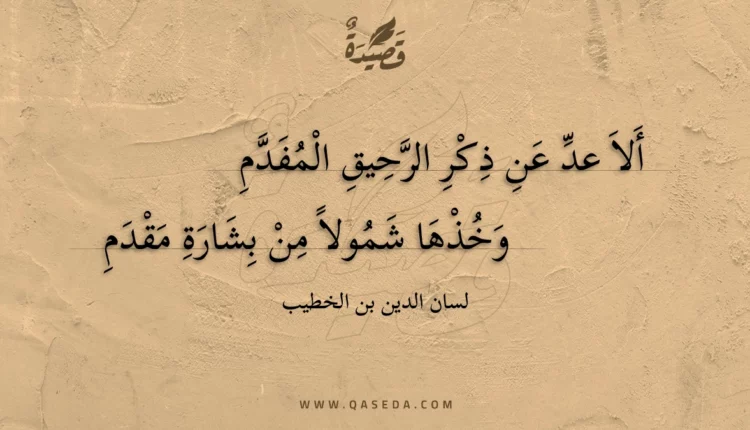 قَصِيدَةٌ
أَلاَ عدِّ عَنِ ذِكْرِ الرَّحِيقِ الْمُفَدَّمِ
وَخُذْهَا شَمُولاً مِنْ بِشَارَةِ مَقْدَمِ
لسان الدين بن الخطيب
WWW.QASEDA.COM